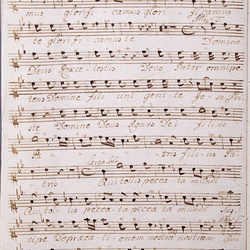 mus glorifi camus glori
te glorifi camus te Domine
Deus Rex celestis Deus Pater omnipo
tens Domine fili uni geni te Je su Chri
ste Domine Deus Agnus Dei Filius
Pa tris filius Pa
tris Qui tollis pecca ta mundi
Qui tol lis pecca ta pecca ta mundi Sus
cipe Depreca ti onem nostram